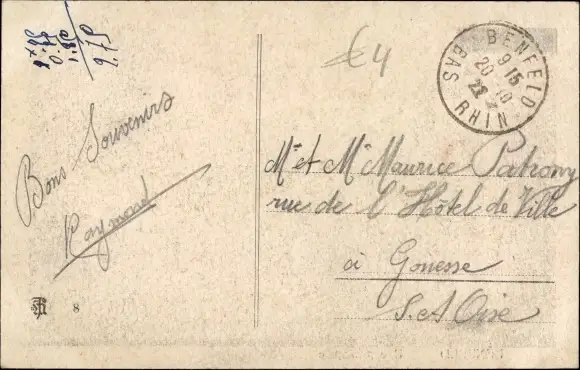 €4
BENFELD
9 15
20 10
BAS RHIN
Bons Souvenirs
Raymond
Mr et Me Maurice Patrony
rue de l'Hôtel de Ville
à Gonesse
S. et Oise
8
1.80
2.75